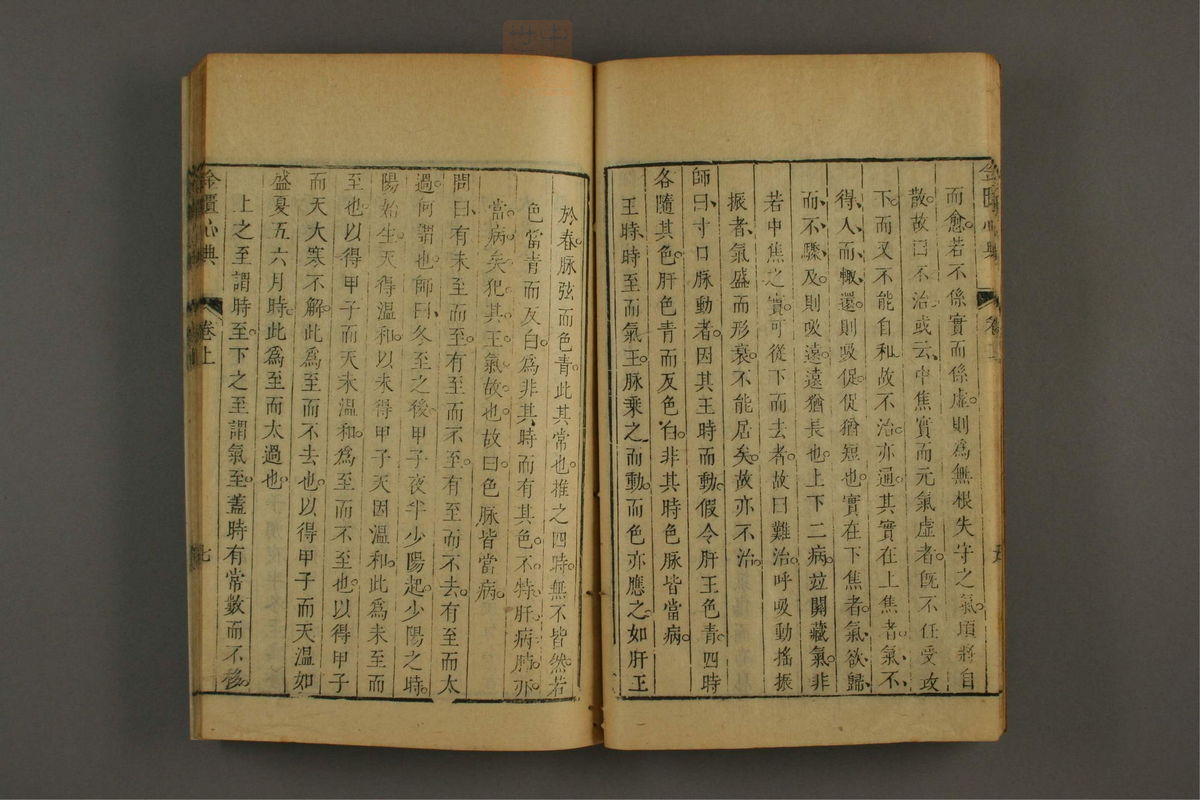 而愈。若不係實而係虛。則爲無根失守之氣。頃將自
散。故曰不治。或云、中焦實而元氣虛者。旣不任受攻
下。而又不能自和。故不治。亦通。其實在上焦者。氣、不、
得、入、而、輒、還。則吸促。促猶短也。實在下焦者。氣、欲、歸、
而、不、驟、及。則吸遠。遠猶長也。上下二病。並關藏氣。非
若中焦之實。可從下而去者。故曰難治。呼吸動搖振
振者。氣盛而形衰。不能居矣。故亦不治。
師曰、寸口脉動者。因其王時而動。假令肝王色青。四時
各隨其色。肝色青而反色白。非其時色脉皆當病。
王時、時至而氣王。脉乘之而動。而色亦應之。如肝王
於春。脉弦而色青。此其常也。推之四時。無不皆然。若
色當青而反白。爲非其時而有其色。不特肝病。肺亦
當病矣。犯其王氣故也。故曰色脉皆當病。
問曰、有未至而至。有至而不至。有至而不去。有至而太
過。何謂也。師曰、冬至之後。甲子夜半少陽起。少陽之時。
陽始生。天得溫和。以未得甲子。天因溫和。此爲未至而
至也。以得甲子而天未溫和。爲至而不至也。以得甲子
而天大寒不解。此爲至而不去也。以得甲子而天溫如
盛夏五六月時。此爲至而太過也。
上之至謂時至。下之至謂氣至。蓋時有常數而不移。
金匱心典
卷上
七